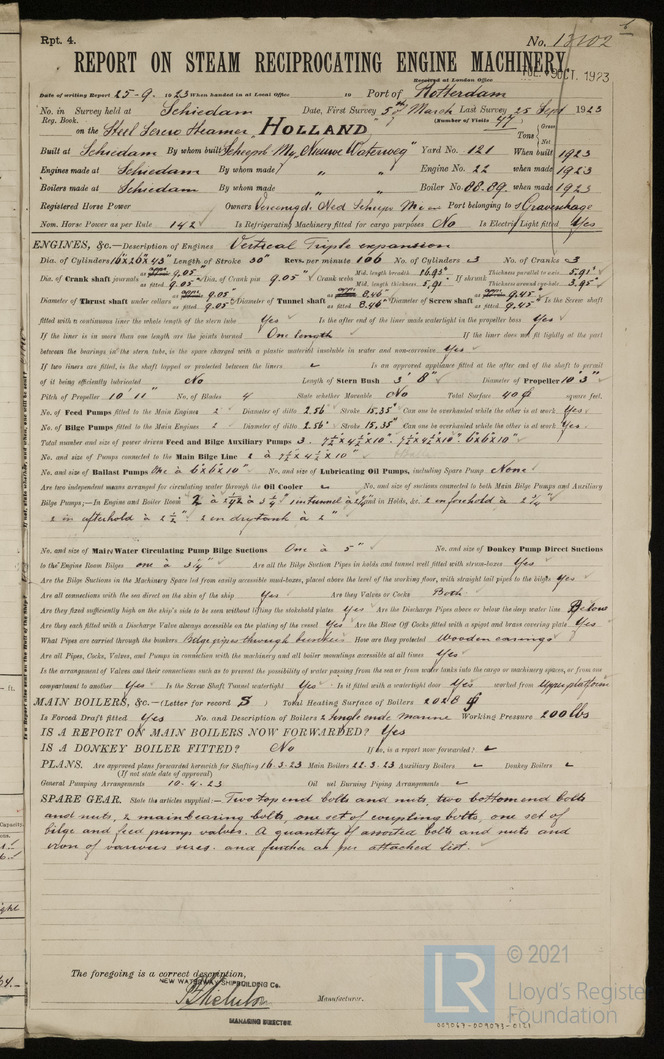 Rpt. 4.
No. 13202
REPORT ON STEAM RECIPROCATING ENGINE MACHINERY.
Received at London Office
TUE. 9 OCT. 1923
Date of writing Report 25-9. 1923 When handed in at Local Office 19 Port of Rotterdam
No. in Survey held at Schiedam Date, First Survey 5th March Last Survey 25 Sept 1923
Reg. Book. (Number of Visits 47)
on the Steel Screw Steamer HOLLAND Tons Gross Net
Built at Schiedam By whom built Scheepsb. My. "Nieuwe Waterweg" Yard No. 121 When built 1923
Engines made at Schiedam By whom made " " Engine No. 22 when made 1923
Boilers made at Schiedam By whom made " " Boiler No. 88.89 when made 1923
Registered Horse Power Owners Vereenigd. Ned Scheepv. Port belonging to s'Gravenhage
Nom. Horse Power as per Rule 142 Is Refrigerating Machinery fitted for cargo purposes No Is Electric Light fitted Yes
ENGINES, &c.—Description of Engines Vertical Triple expansion
Dia. of Cylinders 16"x26"x43" Length of Stroke 30" Revs. per minute 106 No. of Cylinders 3 No. of Cranks 3
Dia. of Crank shaft journals as appr 9.05" as fitted 9.05" Dia. of Crank pin 9.05" Crank webs Mid. length breadth 16.93" Mid. length thickness 5.91" If shrunk Thickness parallel to axis 5.91" Thickness around eye-hole 3.95"
Diameter of Thrust shaft under collars as appr 9.05" as fitted 9.05" Diameter of Tunnel shaft as appr 8.46" as fitted 8.46" Diameter of Screw shaft as appr 9.45" as fitted 9.45" Is the Screw shaft
fitted with a continuous liner the whole length of the stern tube Yes Is the after end of the liner made watertight in the propeller boss Yes
If the liner is in more than one length are the joints burned One length If the liner does not fit tightly at the part
between the bearings in the stern tube, is the space charged with a plastic material insoluble in water and non-corrosive Yes
If two liners are fitted, is the shaft lapped or protected between the liners Is an approved appliance fitted at the after end of the shaft to permit
of it being efficiently lubricated No Length of Stern Bush 3' 8" Diameter of Propeller 10' 3"
Pitch of Propeller 10' 11" No. of Blades 4 State whether Moveable No Total Surface 40 square feet.
No. of Feed Pumps fitted to the Main Engines 2 Diameter of ditto 2.56" Stroke 15.35" Can one be overhauled while the other is at work Yes
No. of Bilge Pumps fitted to the Main Engines 2 Diameter of ditto 2.56" Stroke 15.35" Can one be overhauled while the other is at work Yes
Total number and size of power driven Feed and Bilge Auxiliary Pumps 3. 7½"x4½"x10" 7½"x4½"x10" 6"x6"x10"
No. and size of Pumps connected to the Main Bilge Line 2 à 7½"x4½"x10"
No. and size of Ballast Pumps One à 6"x6"x10" No. and size of Lubricating Oil Pumps, including Spare Pump None
Are two independent means arranged for circulating water through the Oil Cooler No. and size of suctions connected to both Main Bilge Pumps and Auxiliary
Bilge Pumps;—In Engine and Boiler Room 2 à 2½" 2 à 3¼" 1 in tunnel à 2½" and in Holds, &c. 2 in forehold à 2¼"
2 in afterhold à 2½" 2 in drytank à 2"
No. and size of Main Water Circulating Pump Bilge Suctions One à 5" No. and size of Donkey Pump Direct Suctions
to the Engine Room Bilges one à 3¼" Are all the Bilge Suction Pipes in holds and tunnel well fitted with strum-boxes Yes
Are the Bilge Suctions in the Machinery Space led from easily accessible mud-boxes, placed above the level of the working floor, with straight tail pipes to the bilges Yes
Are all connections with the sea direct on the skin of the ship Yes Are they Valves or Cocks Both
Are they fixed sufficiently high on the ship's side to be seen without lifting the stokehold plates Yes Are the Discharge Pipes above or below the deep water line Below
Are they each fitted with a Discharge Valve always accessible on the plating of the vessel Yes Are the Blow Off Cocks fitted with a spigot and brass covering plate Yes
What Pipes are carried through the bunkers Bilge pipes through bunkers How are they protected Wooden casings
Are all Pipes, Cocks, Valves, and Pumps in connection with the machinery and all boiler mountings accessible at all times Yes
Is the arrangement of Valves and their connections such as to prevent the possibility of water passing from the sea or from water tanks into the cargo or machinery spaces, or from one
compartment to another Yes Is the Screw Shaft Tunnel watertight Yes Is it fitted with a watertight door Yes worked from Upper platform
MAIN BOILERS, &c.—(Letter for record S) Total Heating Surface of Boilers 2028
Is Forced Draft fitted Yes No. and Description of Boilers 2 single ende marine Working Pressure 200 lbs
IS A REPORT ON MAIN BOILERS NOW FORWARDED? Yes
IS A DONKEY BOILER FITTED? No If so, is a report now forwarded?
PLANS. Are approved plans forwarded herewith for Shafting 16.3-23 Main Boilers 22.3-23 Auxiliary Boilers Donkey Boilers
(If not state date of approval)
General Pumping Arrangements 10-4-23 Oil Fuel Burning Piping Arrangements
SPARE GEAR. State the articles supplied:— Two top end bolts and nuts, two bottom end bolts
and nuts, 2 mainbearing bolts, one set of coupling bolts, one set of
bilge and feed pumps valves. A quantity of assorted bolts and nuts and
iron of various sizes. and further as per attached list.
The foregoing is a correct description,
NEW WATERWAY SHIPBUILDING Co.
Manufacturer.
MANAGING DIRECTOR
LR
© 2021
Lloyd's Register
Foundation
009067-009073-0121